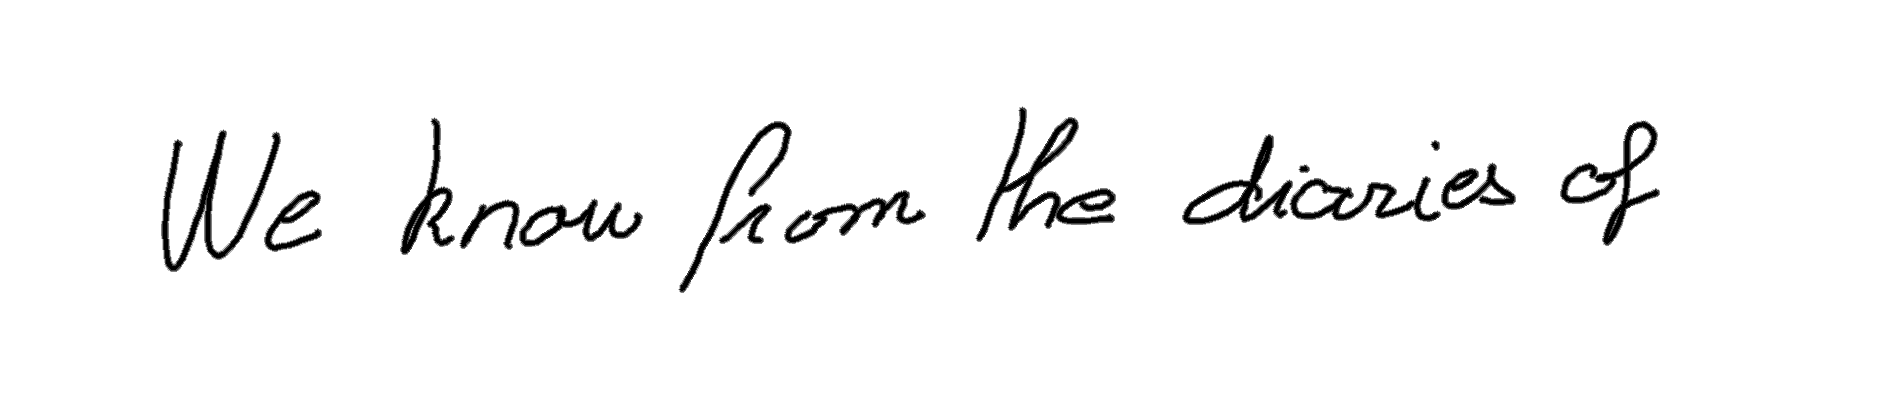 We know from the diaries of